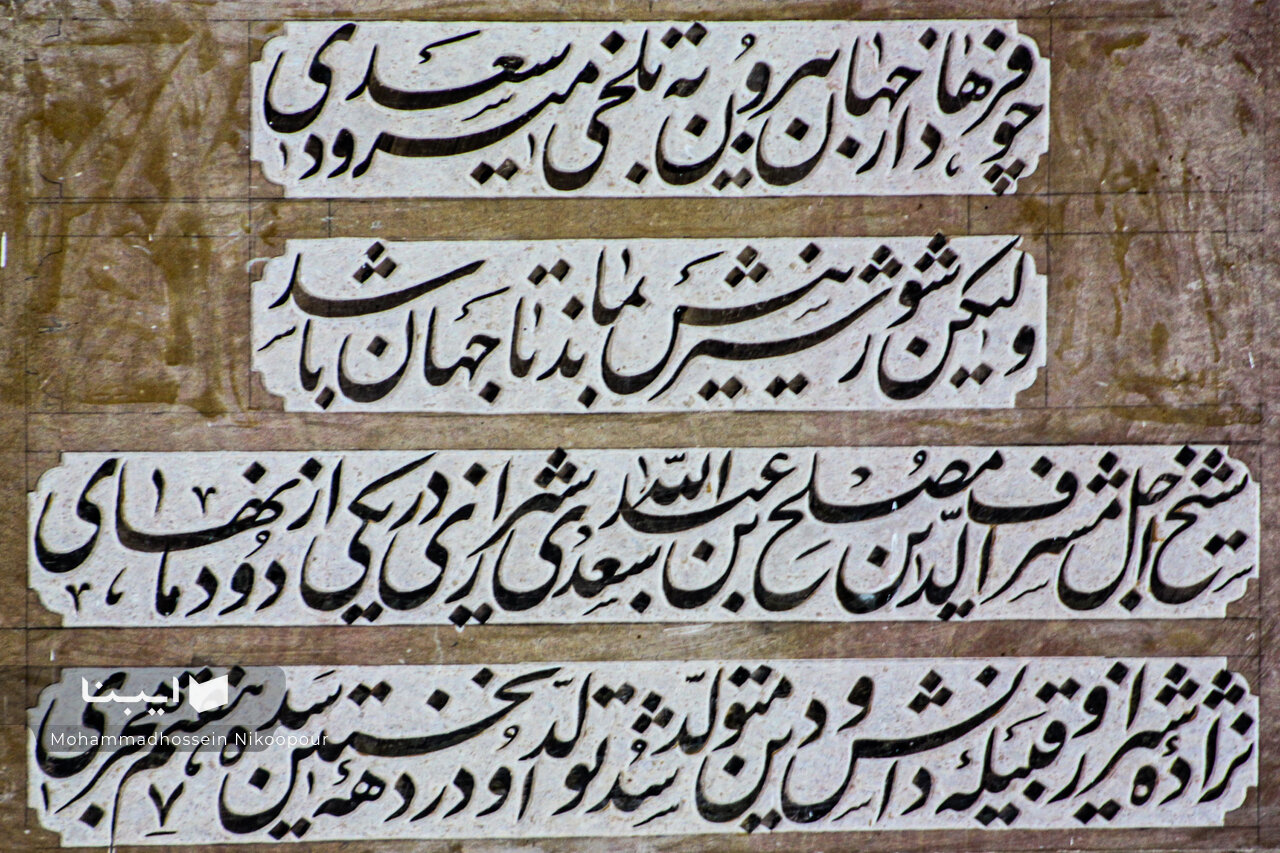 چو فرهاد از جهان بیرون به تلخی میرود سعدی
ولیکن شور شیرینش بماند تا جهان باشد
شیخ اجل مشرف الدین مصلح بن عبدالله سعدی شیرازی در یکی از دودمانهای
نژاده شیراز و قبیله دانش و دین متولد شد تولد او در دهه نخستین سده هفتم هجری
ایبنا
Mohammadhossein Nikoopour